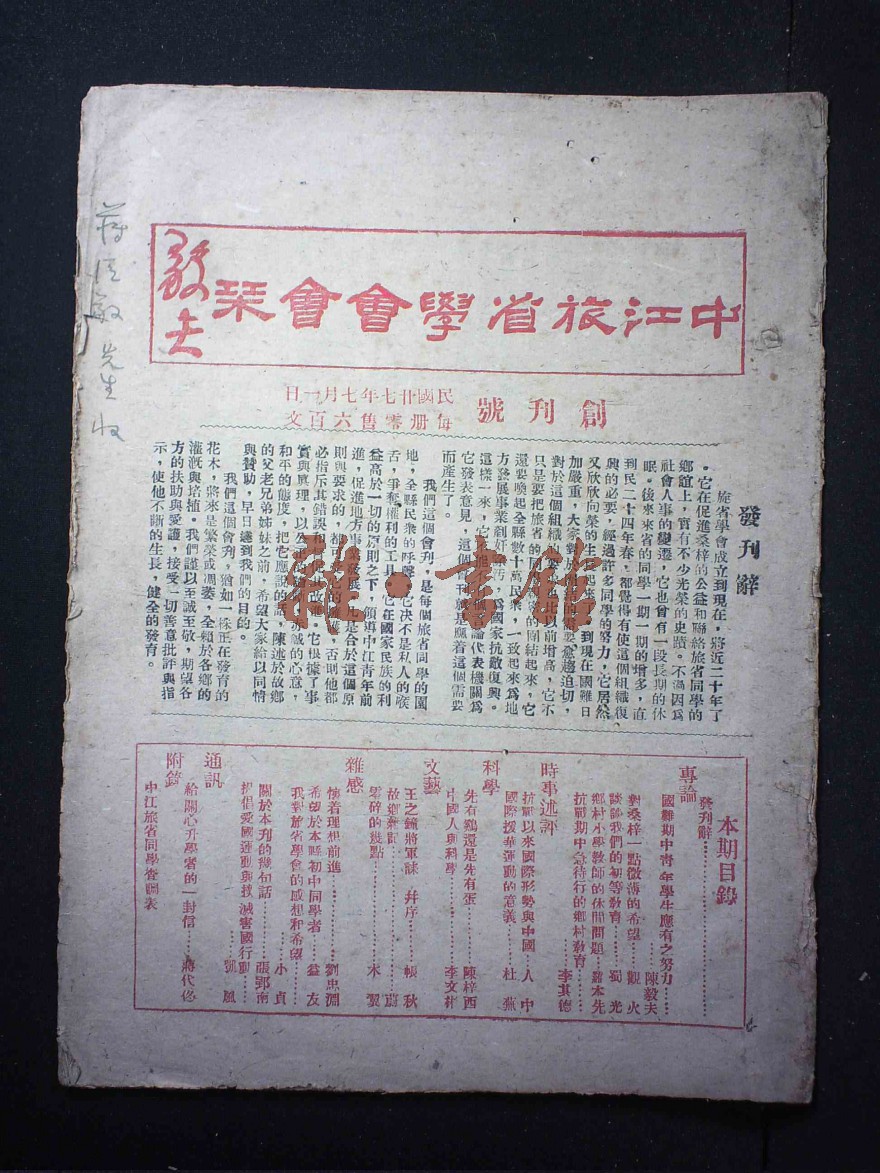 中江旅省學會會栞
毅夫
創刊號
民國廿七年七月一日
每册零售六百文
發刊辭
旅省學會成立到現在，將近二十年了
。它在促進桑梓的公益和聯絡旅省同學的
鄉誼上，實有不少光榮的史蹟。不過因爲
社會人事的變遷，它也曾有一段長期的休
眠。後來來省的同學一期一期的增多，直
到民二十四年春，都覺得有使這個組織復
興的必要，經過許多同學的努力，它居然
又欣欣向榮的生
到現在國難日
加嚴重，大家對於
需要愈趨迫切，
對於這個組織的
比以前增高，它不
只是要把旅省的同
的團結起來，它
還要喚起全縣數十萬民衆，一致起來爲地
方發展事業剷奸除污，爲國家抗敵復興。
這樣一來，它
論代表機關爲
它發表意見，這個會刊就是應着這個需要
而產生了。
我們這個會刊，是每個旅省同學的園
地，全縣民衆的呼聲，它決不是私人的喉
舌，爭奪權利的工具，它在國家民族的利
益高於一切的原則之下，領導中江青年前
進，促進地方事業發展，凡是合於這個原
則與要求的，都
的擁護，否則他都
必指斥其錯誤和
改進。它根據了事
實與真理，以公正的
赤誠的心意，
和平的態度，把它應說的話，陳述於故鄉
的父老兄弟姊妹之前，希望大家給以同情
與贊助，早日達到我們的目的。
我們這個會刋，猶如一株正在發育的
花木，將來是繁榮或凋萎，全賴於各鄉的
灌漑與培植。我們謹以至誠至敬，期望各
方的扶助與愛護，接受一切善意批評與指
示，使他不斷的生長，健全的發育。
本期目錄
發刊辭
專論
國難期中青年學生應有之努力……陳毅夫
對桑梓一點微薄的希望……觀火
談談我們的初等教育……蜀光
鄉村小學教師的休閒問題……蕭本先
抗戰期中急待行的鄉村教育……李其德
時事述評
抗戰以來國際形勢與中國……人中
國際援華運動的意義……杜蕪
科學
先有鷄還是先有蛋……陳梓西
中國人與科學……李文彬
文藝
王之鍾將軍誄 幷序……帳秋
故鄉雜記……蔚
零碎的幾點……木翼
雜感
懷着理想前進……劉忠淵
希望於本縣初中同學者……益友
我對旅省學會的感想和希望……小貞
關於本刊的幾句話……張鄂南
提倡愛國運動與撲滅害國行動……凱風
通訊
給關心升學者的一封信……蔣代修
附錄
中江旅省同學查調表
敏先生收
雅·書館